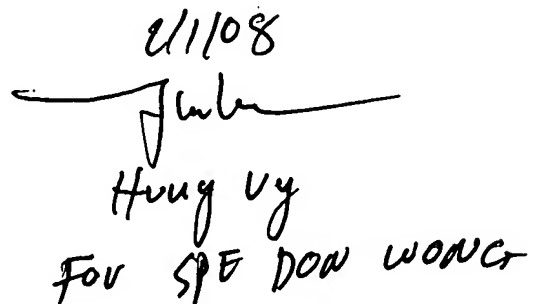 2/1/08
Hung Vy
FOR SPE DON WONG